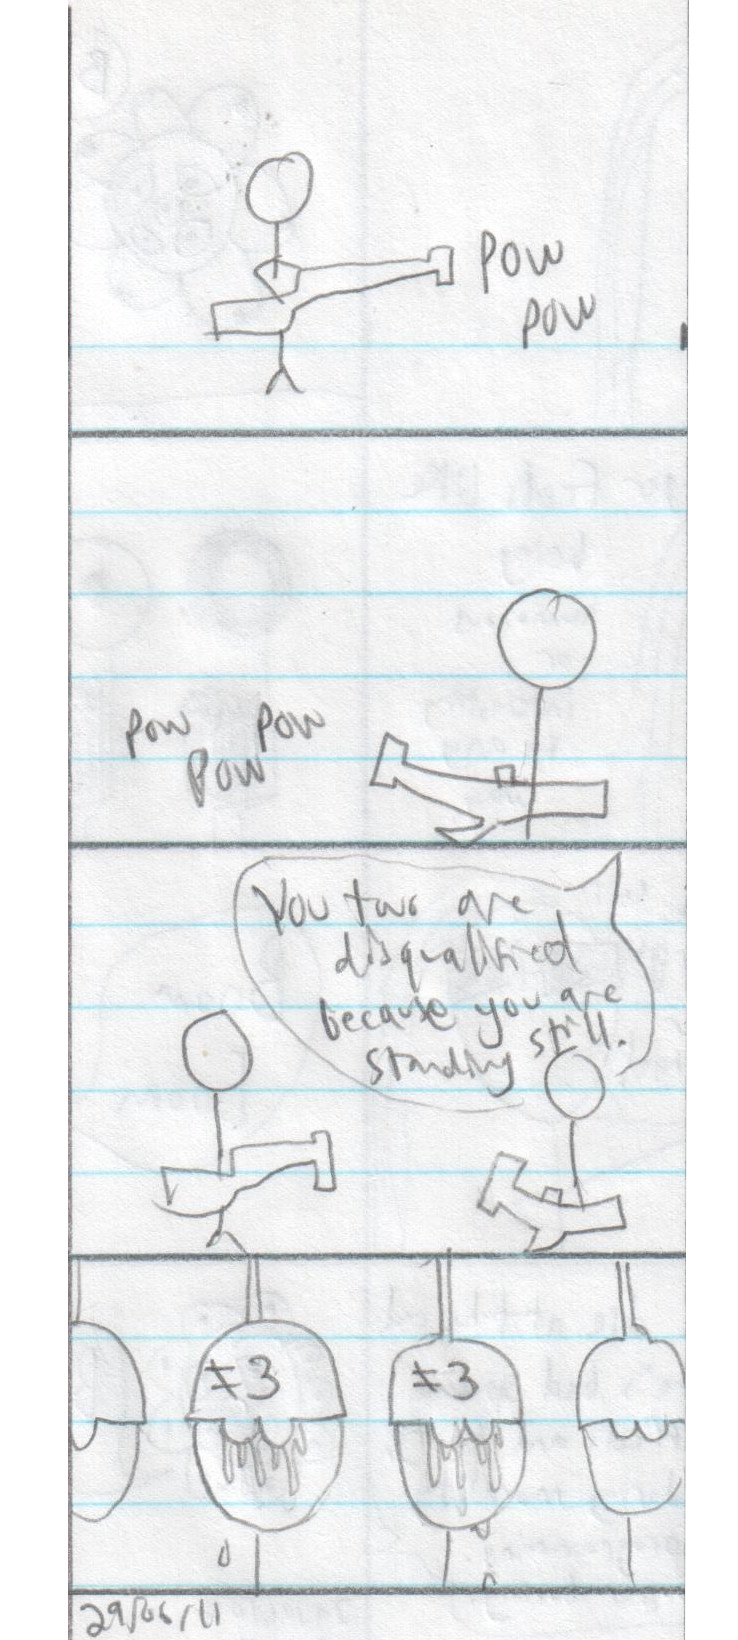 POW
POW
POW POW
POW
You two are
disqualified
because you are
standing still.
#3 #3
29/06/11